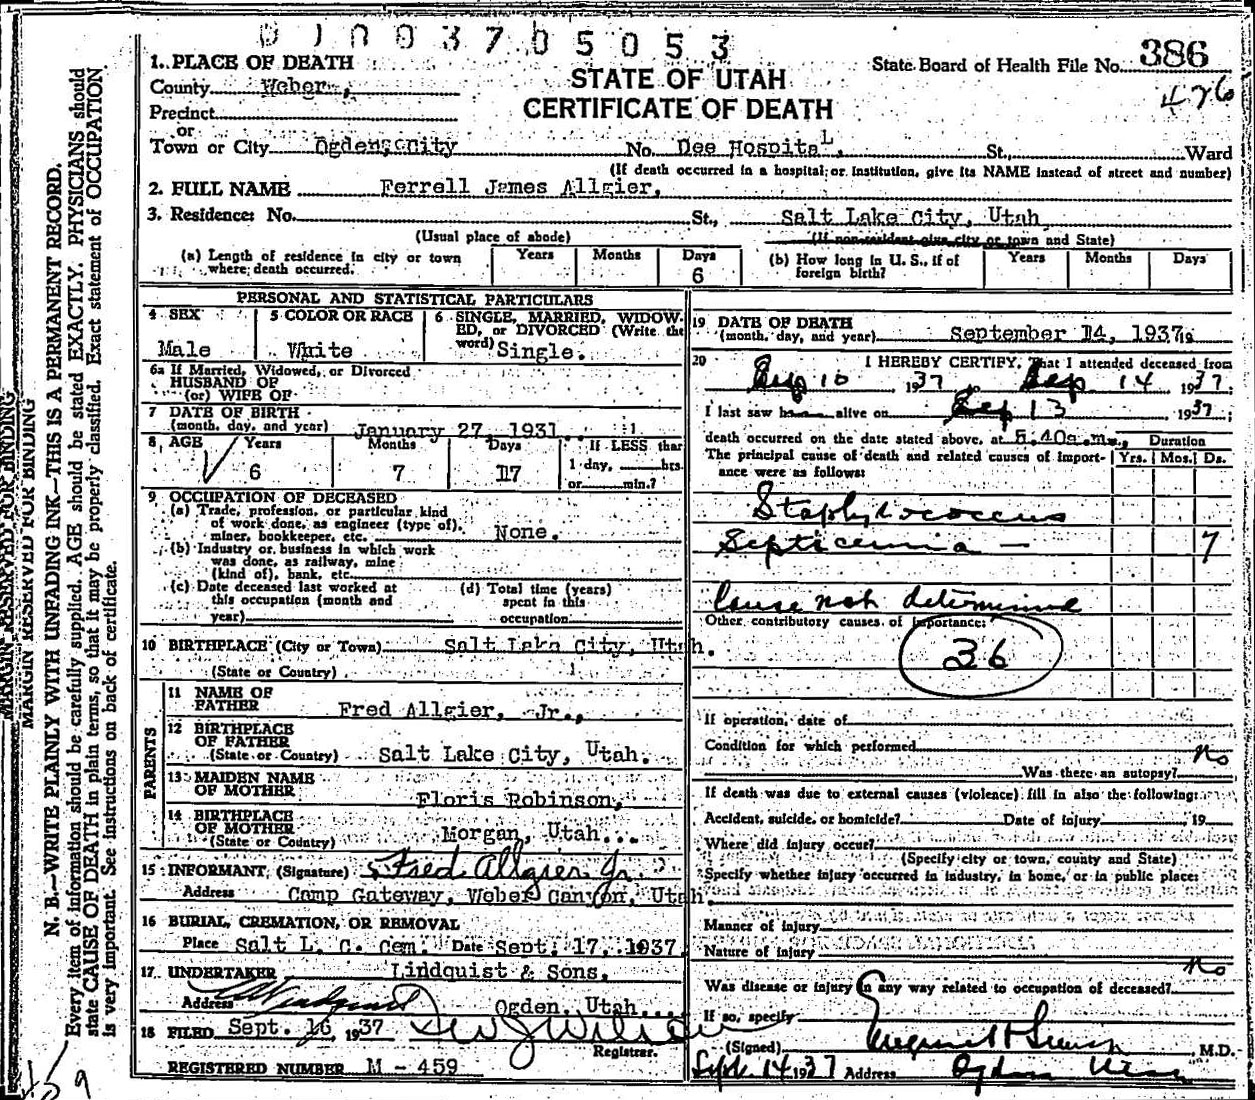 01003705053
1. PLACE OF DEATH
STATE OF UTAH
CERTIFICATE OF DEATH
State Board of Health File No. 386
426
County Weber,
Precinct
or
Town or City Ogden, City No. Dee Hospital, St., Ward
(If death occurred in a hospital or institution, give its NAME instead of street and number)
2. FULL NAME Ferrell James Allgier,
3. Residence: No. St., Salt Lake City, Utah
(Usual place of abode) (If non-resident give city or town and State)
(a) Length of residence in city or town where death occurred. Years Months Days 6
(b) How long in U. S., if of foreign birth? Years Months Days
PERSONAL AND STATISTICAL PARTICULARS
4 SEX Male
5 COLOR OR RACE White
6 SINGLE, MARRIED, WIDOWED, or DIVORCED (Write the word) Single.
6a If Married, Widowed, or Divorced
HUSBAND OF
(or) WIFE OF
7 DATE OF BIRTH
(month, day, and year) January 27, 1931
8. AGE Years 6 Months 7 Days 17 If LESS than
1 day, hrs.
or min.?
9 OCCUPATION OF DECEASED
(a) Trade, profession, or particular kind
of work done, as engineer (type of),
miner, bookkeeper, etc. None.
(b) Industry or business in which work
was done, as railway, mine
(kind of), bank, etc.
(c) Date deceased last worked at
this occupation (month and
year)
(d) Total time (years)
spent in this
occupation
10 BIRTHPLACE (City or Town) Salt Lake City, Utah.
(State or Country)
PARENTS
11 NAME OF
FATHER Fred Allgier, Jr.,
12 BIRTHPLACE
OF FATHER
(State or Country) Salt Lake City, Utah.
13 MAIDEN NAME
OF MOTHER Floris Robinson,
14 BIRTHPLACE
OF MOTHER
(State or Country) Morgan, Utah.
15 INFORMANT, (Signature) Fred Allgier Jr.
Address Camp Gateway, Weber Canyon, Utah.
16 BURIAL, CREMATION, OR REMOVAL
Place Salt L. C. Cem. Date Sept. 17, 1937.
17. UNDERTAKER Lindquist & Sons.
Address Ogden, Utah.
18 FILED Sept. 16, 1937
Registrar.
REGISTERED NUMBER M - 459
19 DATE OF DEATH
(month, day, and year) September 14, 1937
20 I HEREBY CERTIFY, That I attended deceased from
Sep 10 1937 Sep 14 1937.
I last saw h alive on Sep 13 1937;
death occurred on the date stated above, at 5.40a.m., Duration
The principal cause of death and related causes of importance were as follows: Yrs. Mos. Ds.
Staphylococcus
Septicemia — 7
Cause not determined
Other contributory causes of importance:
36
If operation, date of
Condition for which performed
Was there an autopsy? No
If death was due to external causes (violence) fill in also the following:
Accident, suicide, or homicide? Date of injury , 19
Where did injury occur?
(Specify city or town, county and State)
Specify whether injury occurred in industry, in home, or in public place:
Manner of injury
Nature of injury
Was disease or injury in any way related to occupation of deceased? No
If so, specify
(Signed) , M.D.
Sept 14 1937 Address Ogden Utah
MARGIN RESERVED FOR BINDING
MARGIN RESERVED FOR BINDING
N. B.—WRITE PLAINLY WITH UNFADING INK—THIS IS A PERMANENT RECORD.
Every item of information should be carefully supplied. AGE should be stated EXACTLY. PHYSICIANS should
state CAUSE OF DEATH in plain terms, so that it may be properly classified. Exact statement of OCCUPATION
is very important. See instructions on back of certificate.